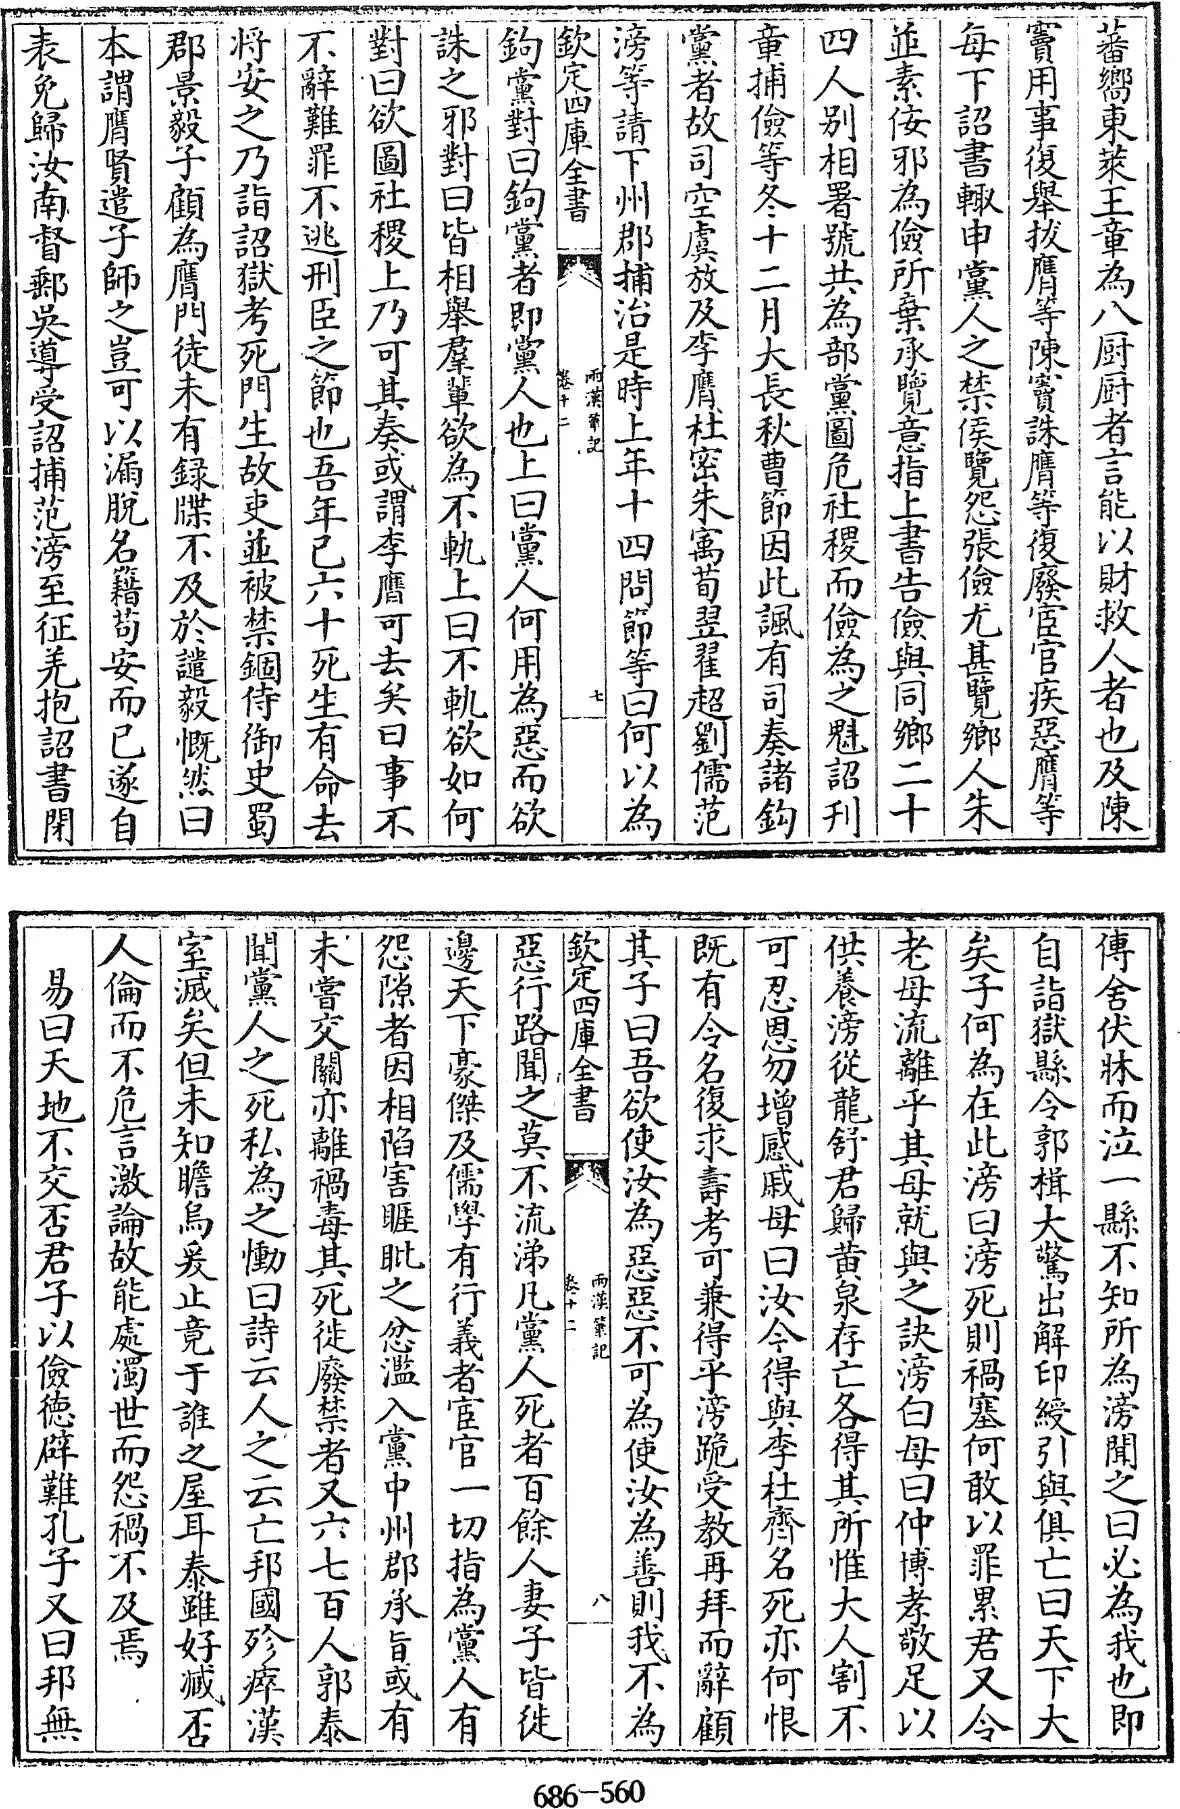 蕃嚮東萊王章為八厨厨者言能以財救人者也及陳
竇用事復舉拔膺等陳竇誅膺等復廢宦官疾惡膺等
每下詔書輙申黨人之禁侯覽怨張儉尤甚覽鄉人朱
並素佞邪為儉所棄承覽意指上書告儉與同鄉二十
四人别相署號共為部黨圖危社稷而儉為之魁詔刋
章捕儉等冬十二月大長秋曹節因此諷有司奏諸鈎
黨者故司空虞放及李膺杜密朱㝢荀翌翟超劉儒范
滂等請下州郡捕治是時上年十四問節等曰何以為
欽定四庫全書
兩漢筆記
卷十二
七
鈎黨對曰鈎黨者即黨人也上曰黨人何用為惡而欲
誅之邪對曰皆相舉羣輩欲為不軌上曰不軌欲如何
對曰欲圖社稷上乃可其奏或謂李膺可去矣曰事不
不辭難罪不逃刑臣之節也吾年已六十死生有命去
将安之乃詣詔獄考死門生故吏並被禁錮侍御史蜀
郡景毅子顧為膺門徒未有録牒不及於譴毅慨然曰
本謂膺賢遣子師之豈可以漏脫名籍苟安而已遂自
表免歸汝南督郵吳導受詔捕范滂至征羌抱詔書閉
傳舍伏牀而泣一縣不知所為滂聞之曰必為我也即
自詣獄縣令郭楫大驚出解印綬引與俱亡曰天下大
矣子何為在此滂曰滂死則禍塞何敢以罪累君又令
老母流離乎其母就與之訣滂白母曰仲博孝敬足以
供養滂從龍舒君歸黄泉存亡各得其所惟大人割不
可忍恩勿增感戚母曰汝今得與李杜齊名死亦何恨
既有令名復求壽考可兼得乎滂跪受教再拜而辭顧
其子曰吾欲使汝為惡惡不可為使汝為善則我不為
欽定四庫全書
兩漢筆記
卷十二
八
惡行路聞之莫不流涕凡黨人死者百餘人妻子皆徙
邊天下豪傑及儒學有行義者宦官一切指為黨人有
怨隙者因相陷害睚眦之忿濫入黨中州郡承旨或有
未嘗交關亦離禍毒其死徙廢禁者又六七百人郭泰
聞黨人之死私為之慟曰詩云人之云亡邦國殄瘁漢
室滅矣但未知瞻烏爰止竟于誰之屋耳泰雖好臧否
人倫而不危言激論故能處濁世而怨禍不及焉
易曰天地不交否君子以儉德辟難孔子又曰邦無
686-560